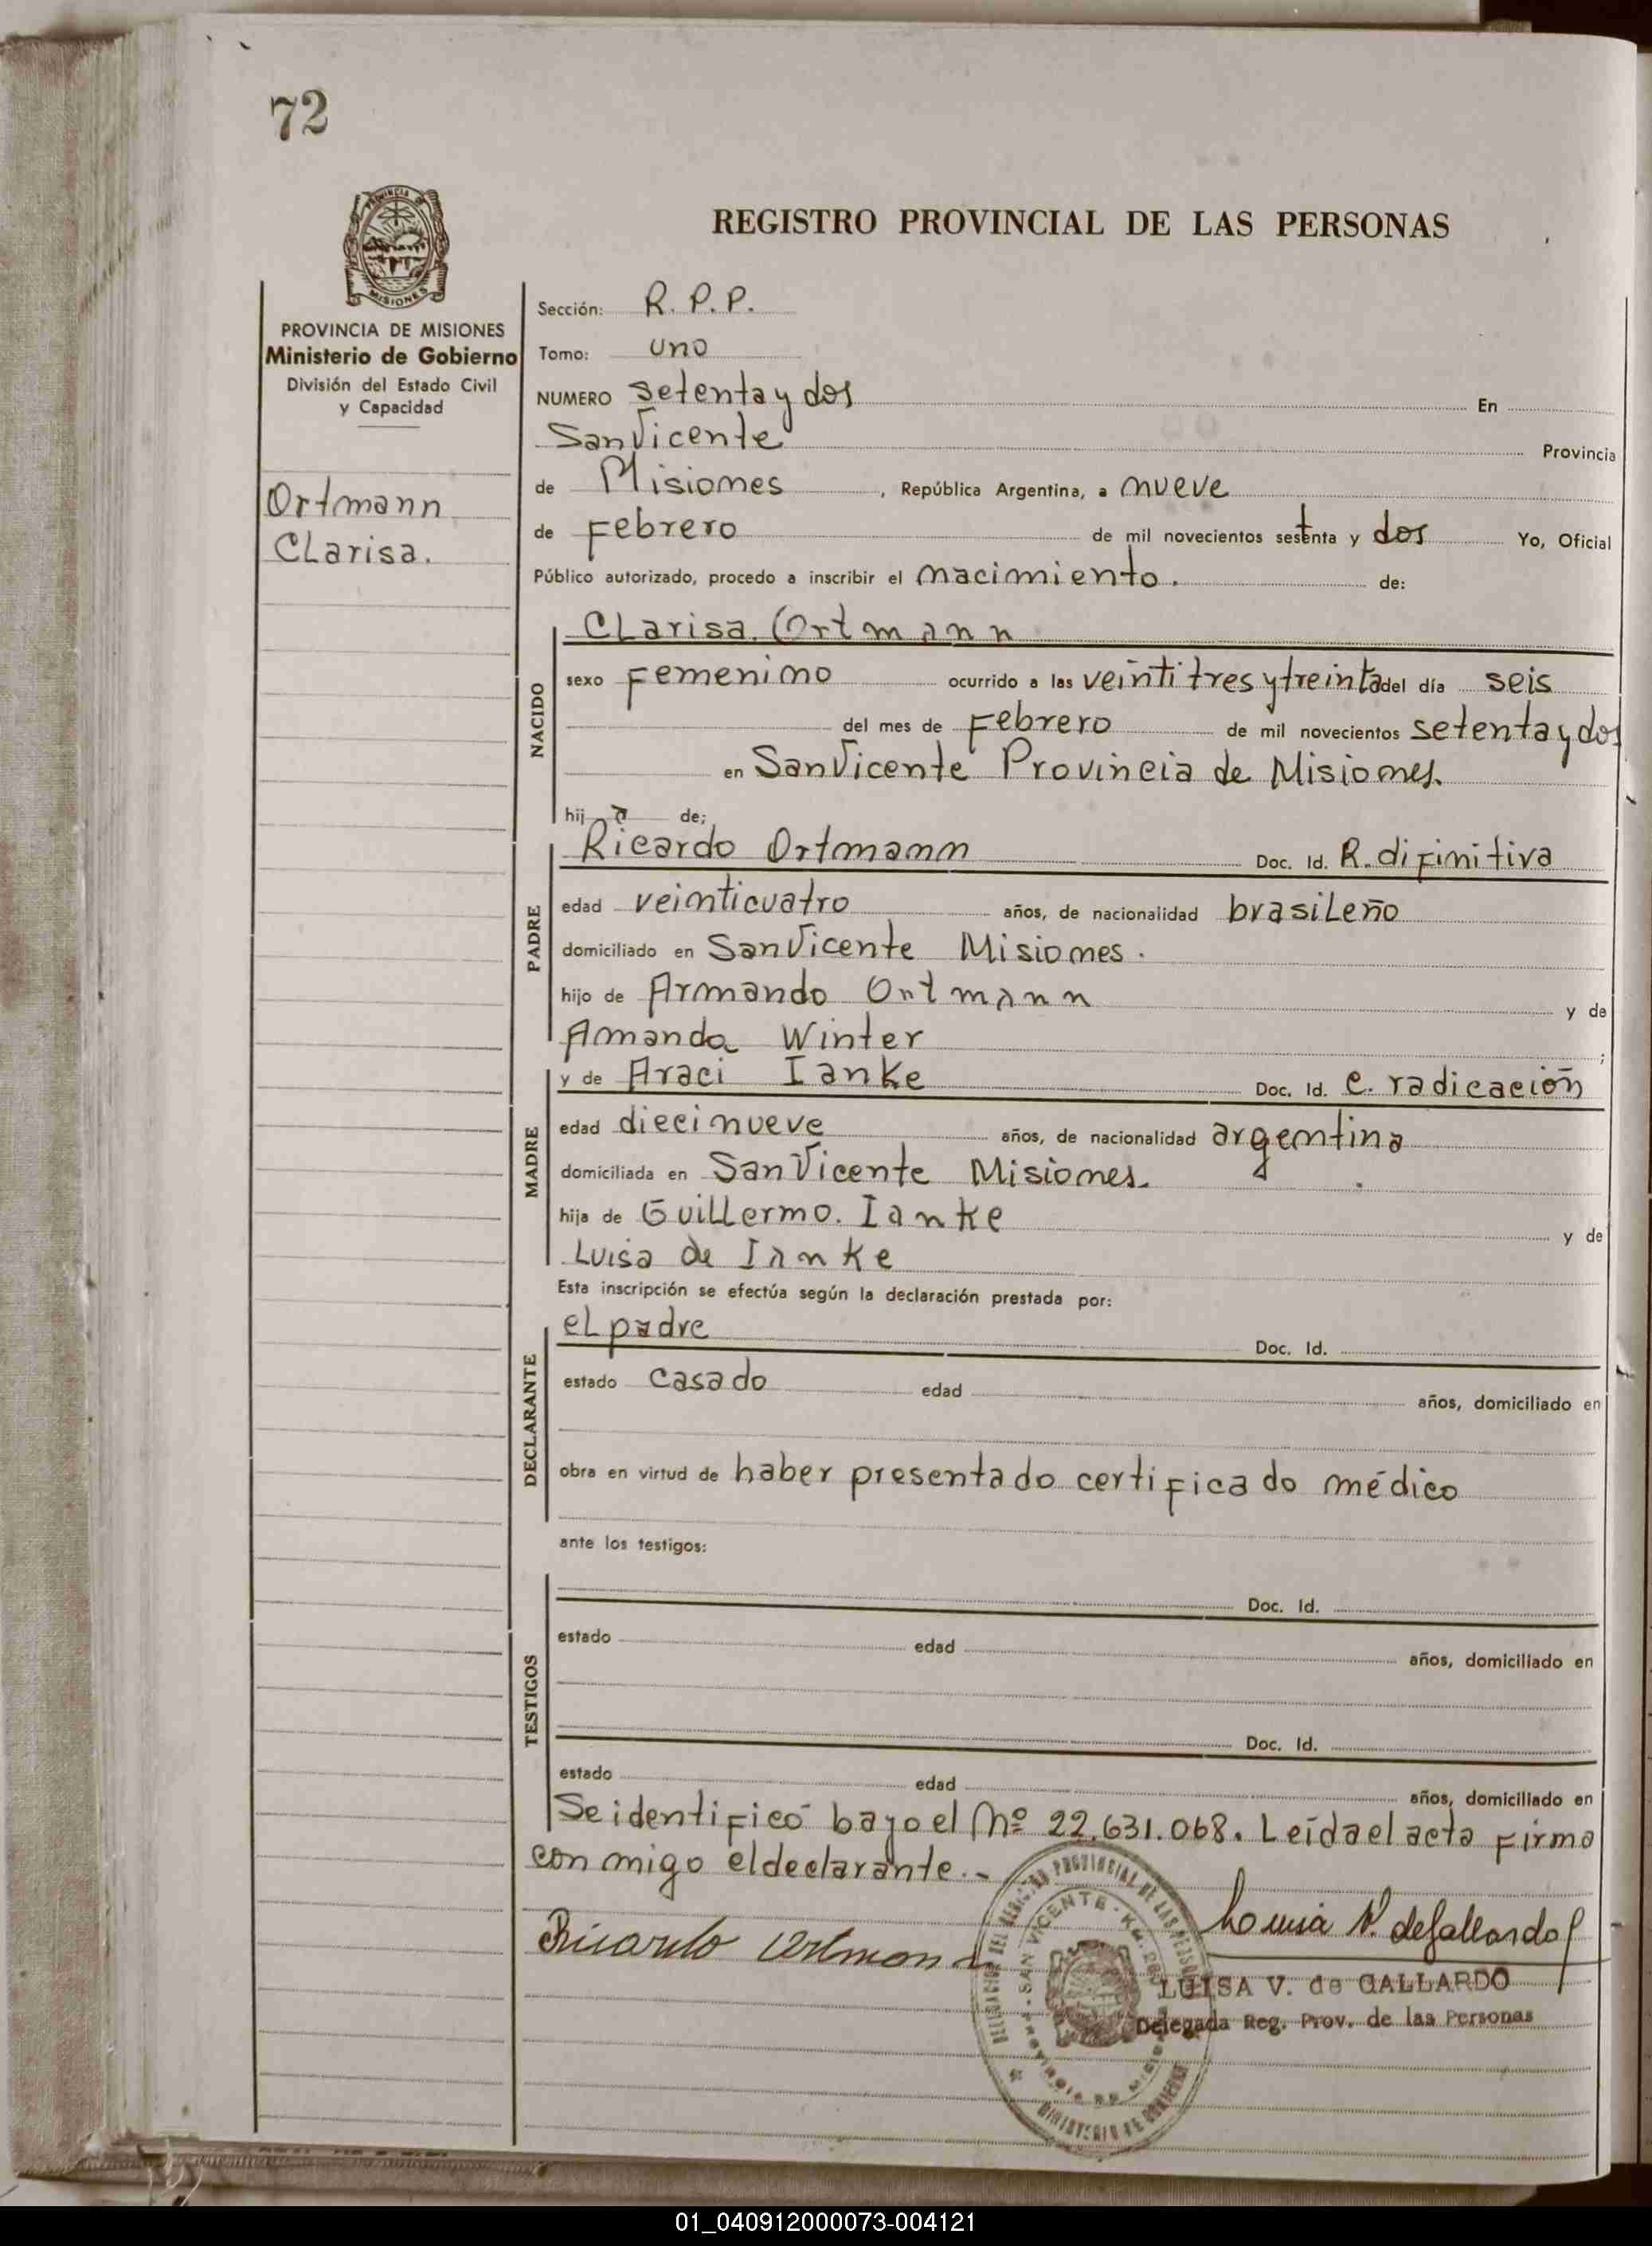 72
MISIONES
REGISTRO PROVINCIAL DE LAS PERSONAS
PROVINCIA DE MISIONES
Ministerio de Gobierno
División del Estado Civil
y Capacidad
Ortmann
CLarisa.
Sección: R. P. P.
Tomo: uno
NUMERO setenta y dos En
San Vicente Provincia
de Misiones , República Argentina, a nueve
de Febrero de mil novecientos setenta y dos Yo, Oficial
Público autorizado, procedo a inscribir el nacimiento. de:
NACIDO
CLarisa. Ortmann
sexo Femenino ocurrido a las veintitres y treinta del día seis
del mes de Febrero de mil novecientos setenta y dos
en San Vicente Provincia de Misiones.
hij a de;
PADRE
Ricardo Ortmann Doc. Id. R. difinitiva
edad veinticuatro años, de nacionalidad brasiLeño
domiciliado en San Vicente Misiones.
hijo de Armando Ortmann y de
Amanda Winter ;
MADRE
y de Araci Ianke Doc. Id. c. radicación
edad diecinueve años, de nacionalidad argentina
domiciliada en San Vicente Misiones.
hija de GuiLLermo. Ianke y de
Luisa de Ianke
Esta inscripción se efectúa según la declaración prestada por:
DECLARANTE
eL padre Doc. Id.
estado casado edad años, domiciliado en
obra en virtud de haber presentado certificado médico
ante los testigos:
TESTIGOS
Doc. Id.
estado edad años, domiciliado en
Doc. Id.
estado edad años, domiciliado en
Se identificó bajo el Nº 22.631.068. Leída el acta firma
conmigo el declarante.-
Ricardo Ortmann
Louisa V. de Gallardo
LUISA V. de GALLARDO
Delegada Reg. Prov. de las Personas
DELEGACION DEL REGISTRO PROVINCIAL DE LAS PERSONAS
SAN VICENTE - Km.
MINISTERIO DE GOBIERNO
01_040912000073-004121